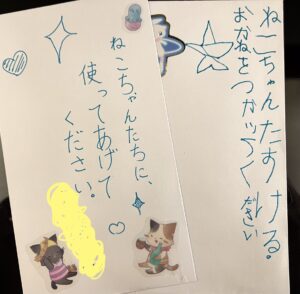 ねこちゃんたすける
おかねをつかってください
ねこちゃんたちに、
使ってあげて
ください!